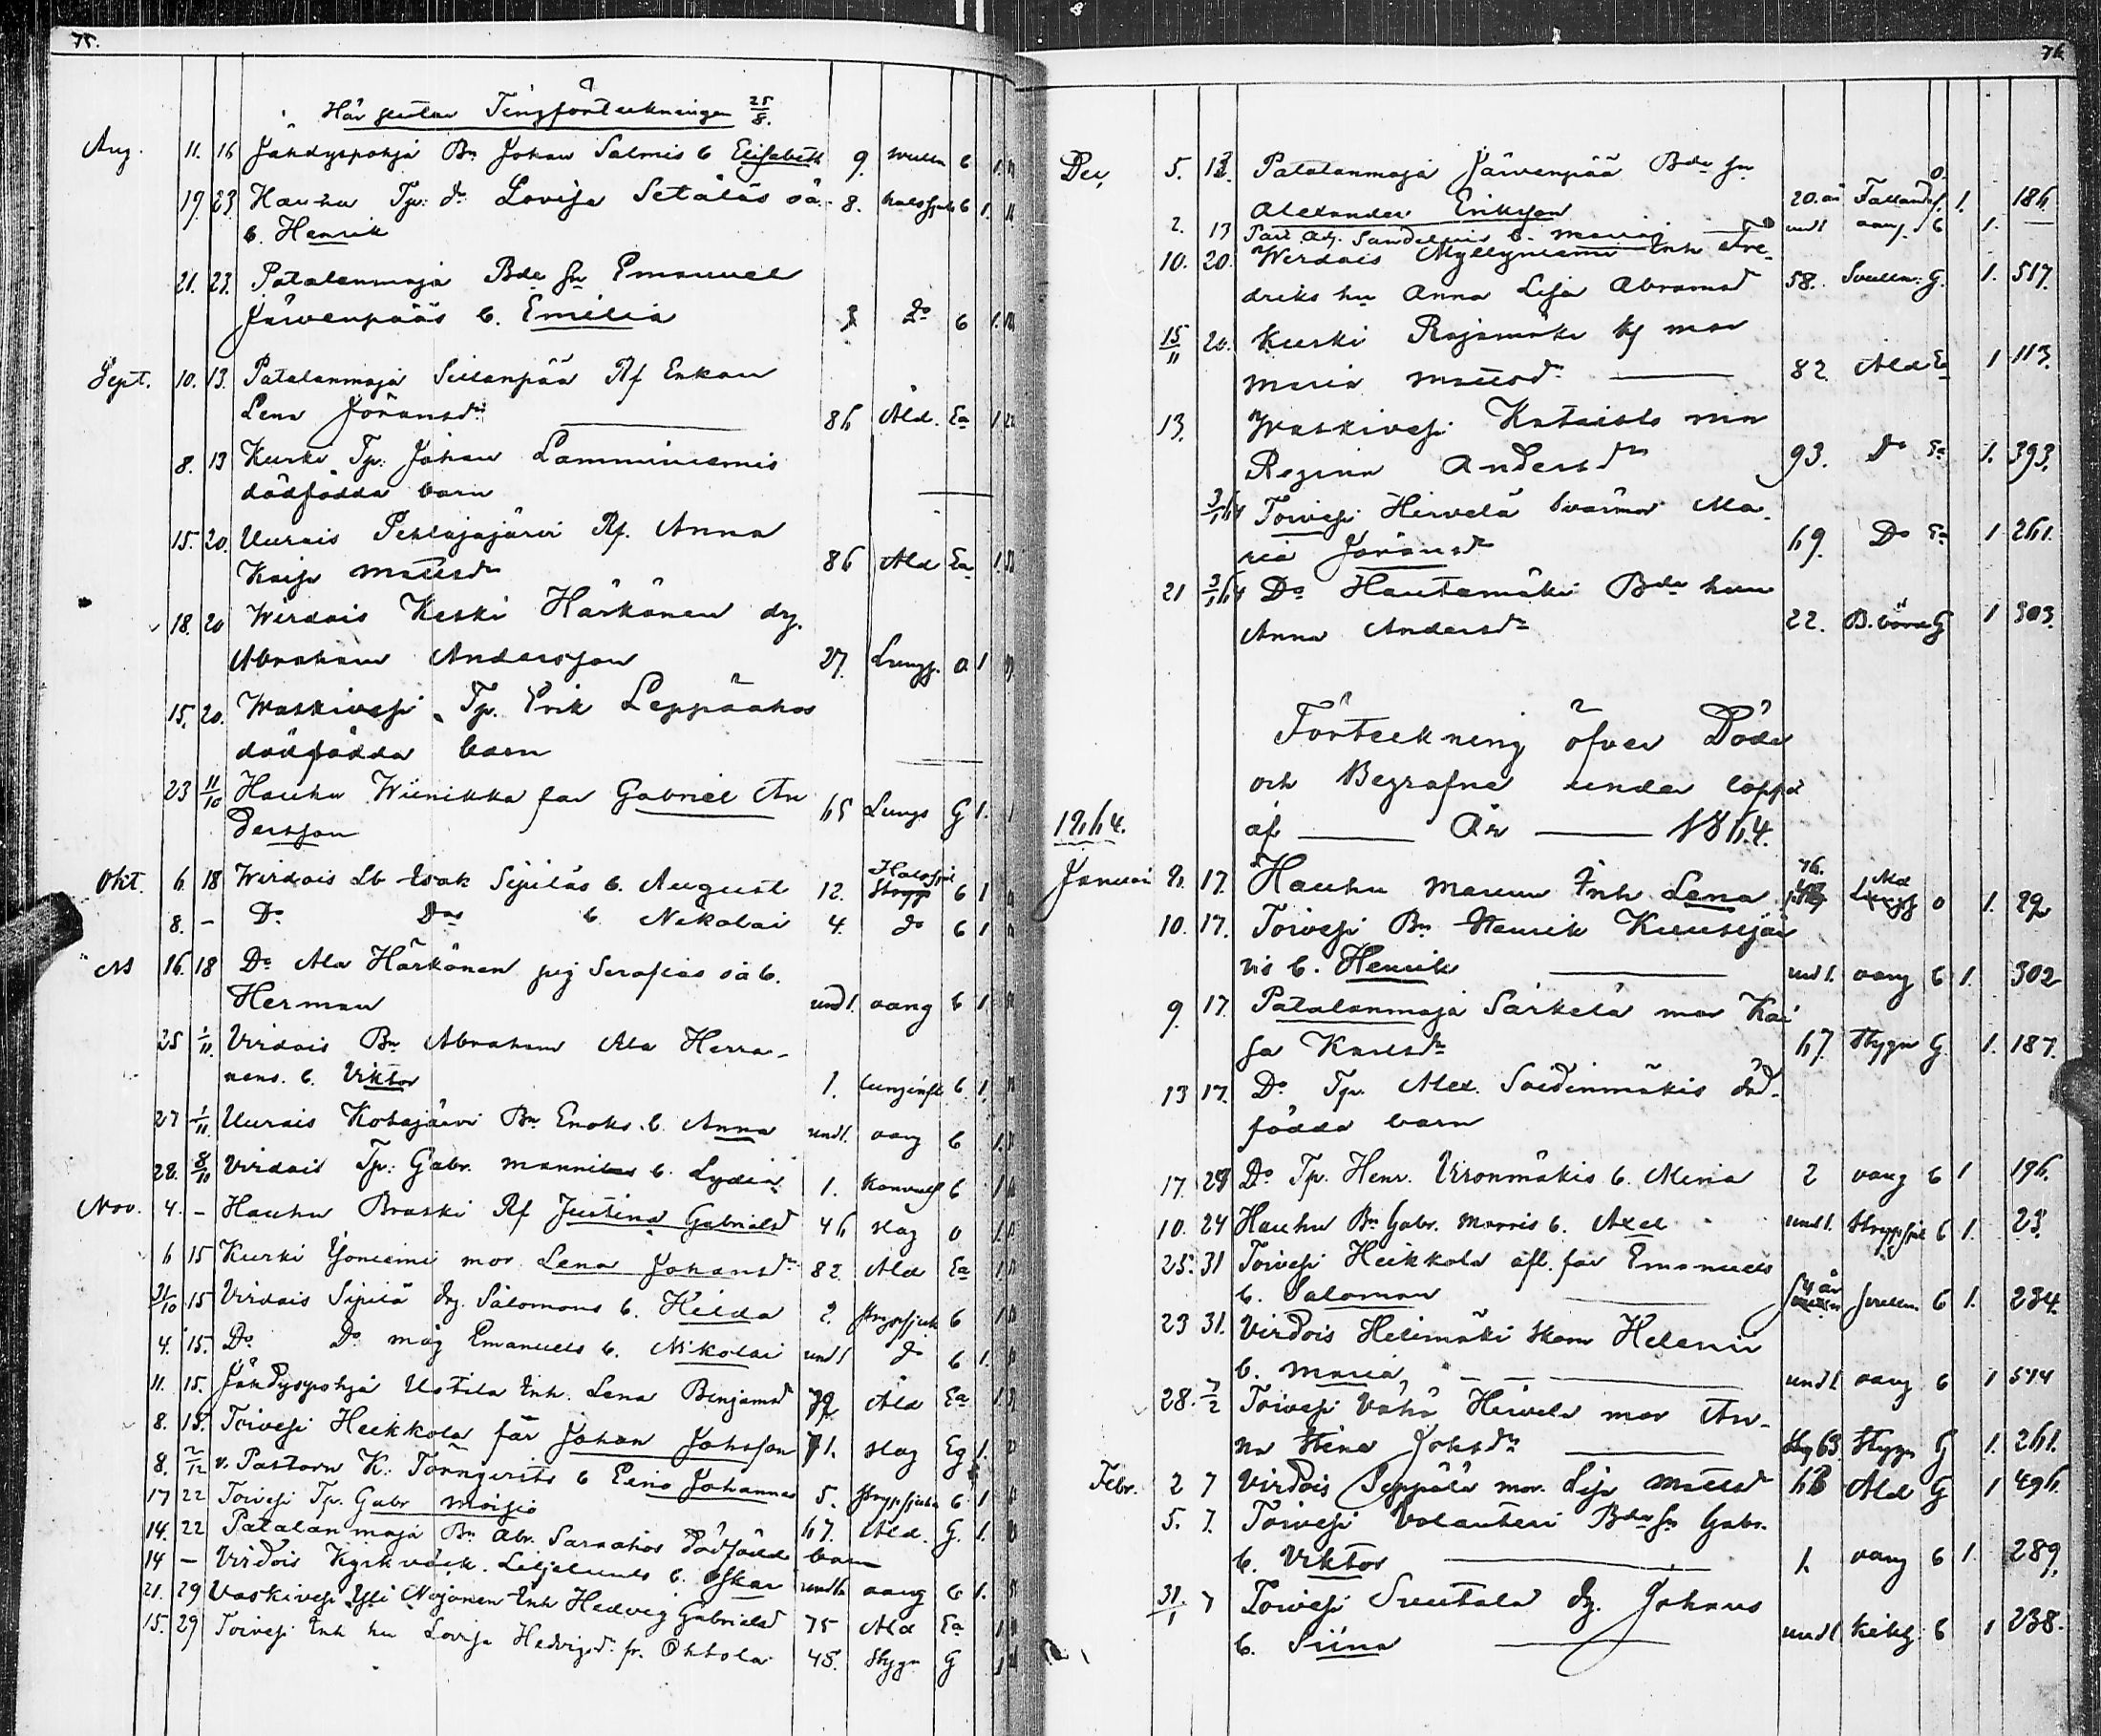 75.
Här slutar Tingförteckningen 25/8.
Aug. 11. 16 Jähdyspohja Bn Johan Salmis b Elisabeth 9. b 1.
19. 23. Hauhu Tp: dr Lovisa Setäläs oä. 8. halssjuk b 1.
b. Henrik
21. 23. Patalanmaja Bde sn Emanuel
Järvenpääs b. Emilia 3 Do b 1.
Sept. 10. 13. Patalanmaja Sillanpää Rf Enkan
Lena Jöransdr 86 Åld. Ea 1
8. 13 Kurki Tp. Johan Lamminniemis
dödfödda barn
15. 20. Uurais Pehlajajärvi Rf. Anna
Kaisa Mattsdr 86 Åld Ea 1.
18. 20 Wirdois Keski Härkönen drg.
Abraham Andersson 27. Lungs. o 1
15. 20. Waskivesi Tp. Erik Leppäahos
dödfödda barn
23 11/10 Hauhu Wiinikka far Gabriel An
dersson 65 Lungs G 1.
Okt. 6 18 Wirdois Lb Isak Sipiläs b. August 12. Halssjuk Strypp b 1
8. - Do Dos b. Nikolai 4. do b 1
16. 18 Do Ala Härkönen pig Serafias oä b.
Herman und 1. oang b 1
25 1/11. Virdois Bn Abraham Ala Herra-
nens. b. Viktor 1. lunginfl b 1.
27 1/11. Uurais Kotajärvi Bn Enoks. b. Anna und 1. oang b 1.
28. 8/10 Virdois Tp: Gabr. Mannilas b. Lydia 1. Konvuls b 1
Nov. 4. - Hauhu Braski Rf Justina Gabrielsd 46 slag o 1.
6 15 Kurki Yöniemi mor Lena Johansdr 82. Åld Ea 1
21/10 15 Virdois Sipilä drg. Salomons b. Hilda 2. Strypsjuk b 1
4. 15. Do Do måg Emanuels b. Nikolai und 1 do b 1.
11. 15. Jähdyspohja Ustila Inh. Lena Benjamsd Åld Ea 1.
8. 15. Toivesi Heikkola far Johan Johsson 71. slag Eg 1.
8. 2/12 v. Pastorn K. Törnqvists b Eino Johannes 5. Strypsjuka b 1
17 22 Toivesi Tp. Gabr Moisio 67. Åld. G. 1.
14. 22 Patalanmaja Bn Abr. Saraahos dödfödda barn
14 - Virdois Kyrkväck. Liljelunds b. Oskar und 1 oang b 1.
21. 29 Vaskivesi Yli Mojonen Inh Hedvig Gabrielsd 75 Åld Ea 1
15. 29 Toivesi Inh hu Lovisa Hedvigsdr fr. Ohtola 48. Stygn G 1
76
Dec, 5. 13. Patalanmaja Järvenpää Bde sn
Alexander Eriksson 20. år 1. 186.
2. 13 Past. Adj. Sandelins b. Maria und 1 oang b 1.
10. 20. Werdois Myllyniemi Inh Fre-
driks hu Anna Lisa Abramsd 58. Svulln. G. 1. 517.
15/11 20. Kurki Rajamäki Rf mor
Maria Mattsdr 82. Åld Ea 1 113.
13. Waskivesi Kataisto mor
Regina Andersdr 93. Do Ea 1. 393.
3/1 64 Toivesi Hirvelä Svärmor Ma-
ria Jöransdr 69. Do Ea 1 261.
21 3/1 64 Do Hautamäki Bde hu
Anna Andersdr 22. B. börd G 1 303.
Förteckning öfver Döde
och Begrafne under loppet
1864. af År 1864.
Januari 9. 17. Hauhu Mannu Inh Lena 76. Åld o 1. 22
10. 17. Toivesi Bn Henrik Kuusijär
vis b. Henrik und 1. oang b 1. 302
9. 17. Patalanmaja Särkelä mor Kai
sa Karlsdr 67. Stygn G. 1. 187.
13 17. Do Tp. Alex. Soidinmäkis död-
födda barn
17. 24 Do Tp. Henr. Vironmäkis b. Miina 2 oang b 1 196.
10. 24 Hauhu Bn Gabr. Morris b. Axel und 1. Strypsjuk b 1. 23.
25. 31 Toivesi Heikkola afl. far Emanuels
b. Salomon 4 år b 1. 234.
23 31. Virdois Helimäki Skom Helenii
b. Maria, und 1 oang b 1 544
28. 7/2 Toivesi Vähä Hirvelä mor An-
na Stina Johsdr 63. Stygn G 1. 261.
Febr. 2 7 Virdois Seppälä mor. Lisa Mattsd 68 Åld G 1 496.
5. 7. Toivesi Volanteri Bde sn Gabr.
b. Viktor 1. oang b 1. 289.
31/1 7 Toivesi Suutala drg. Johans
b. Siina und 1 Kikh. b 1 238.